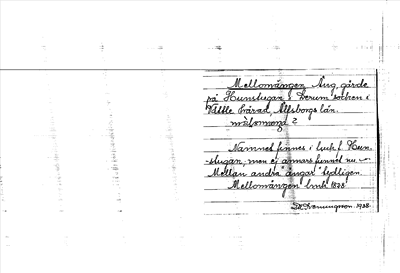 Mellomängen Äng, gärde
på Hunstugan i Lerum socken i
Vättle härad, Älfsborgs län.
mälomang ?
Namnet finnes i bruk f. Hun-
stugan, men ej annars funnet nu
Mellan andra "ängar" tydligen.
Mellomängen lmk 1838
1938